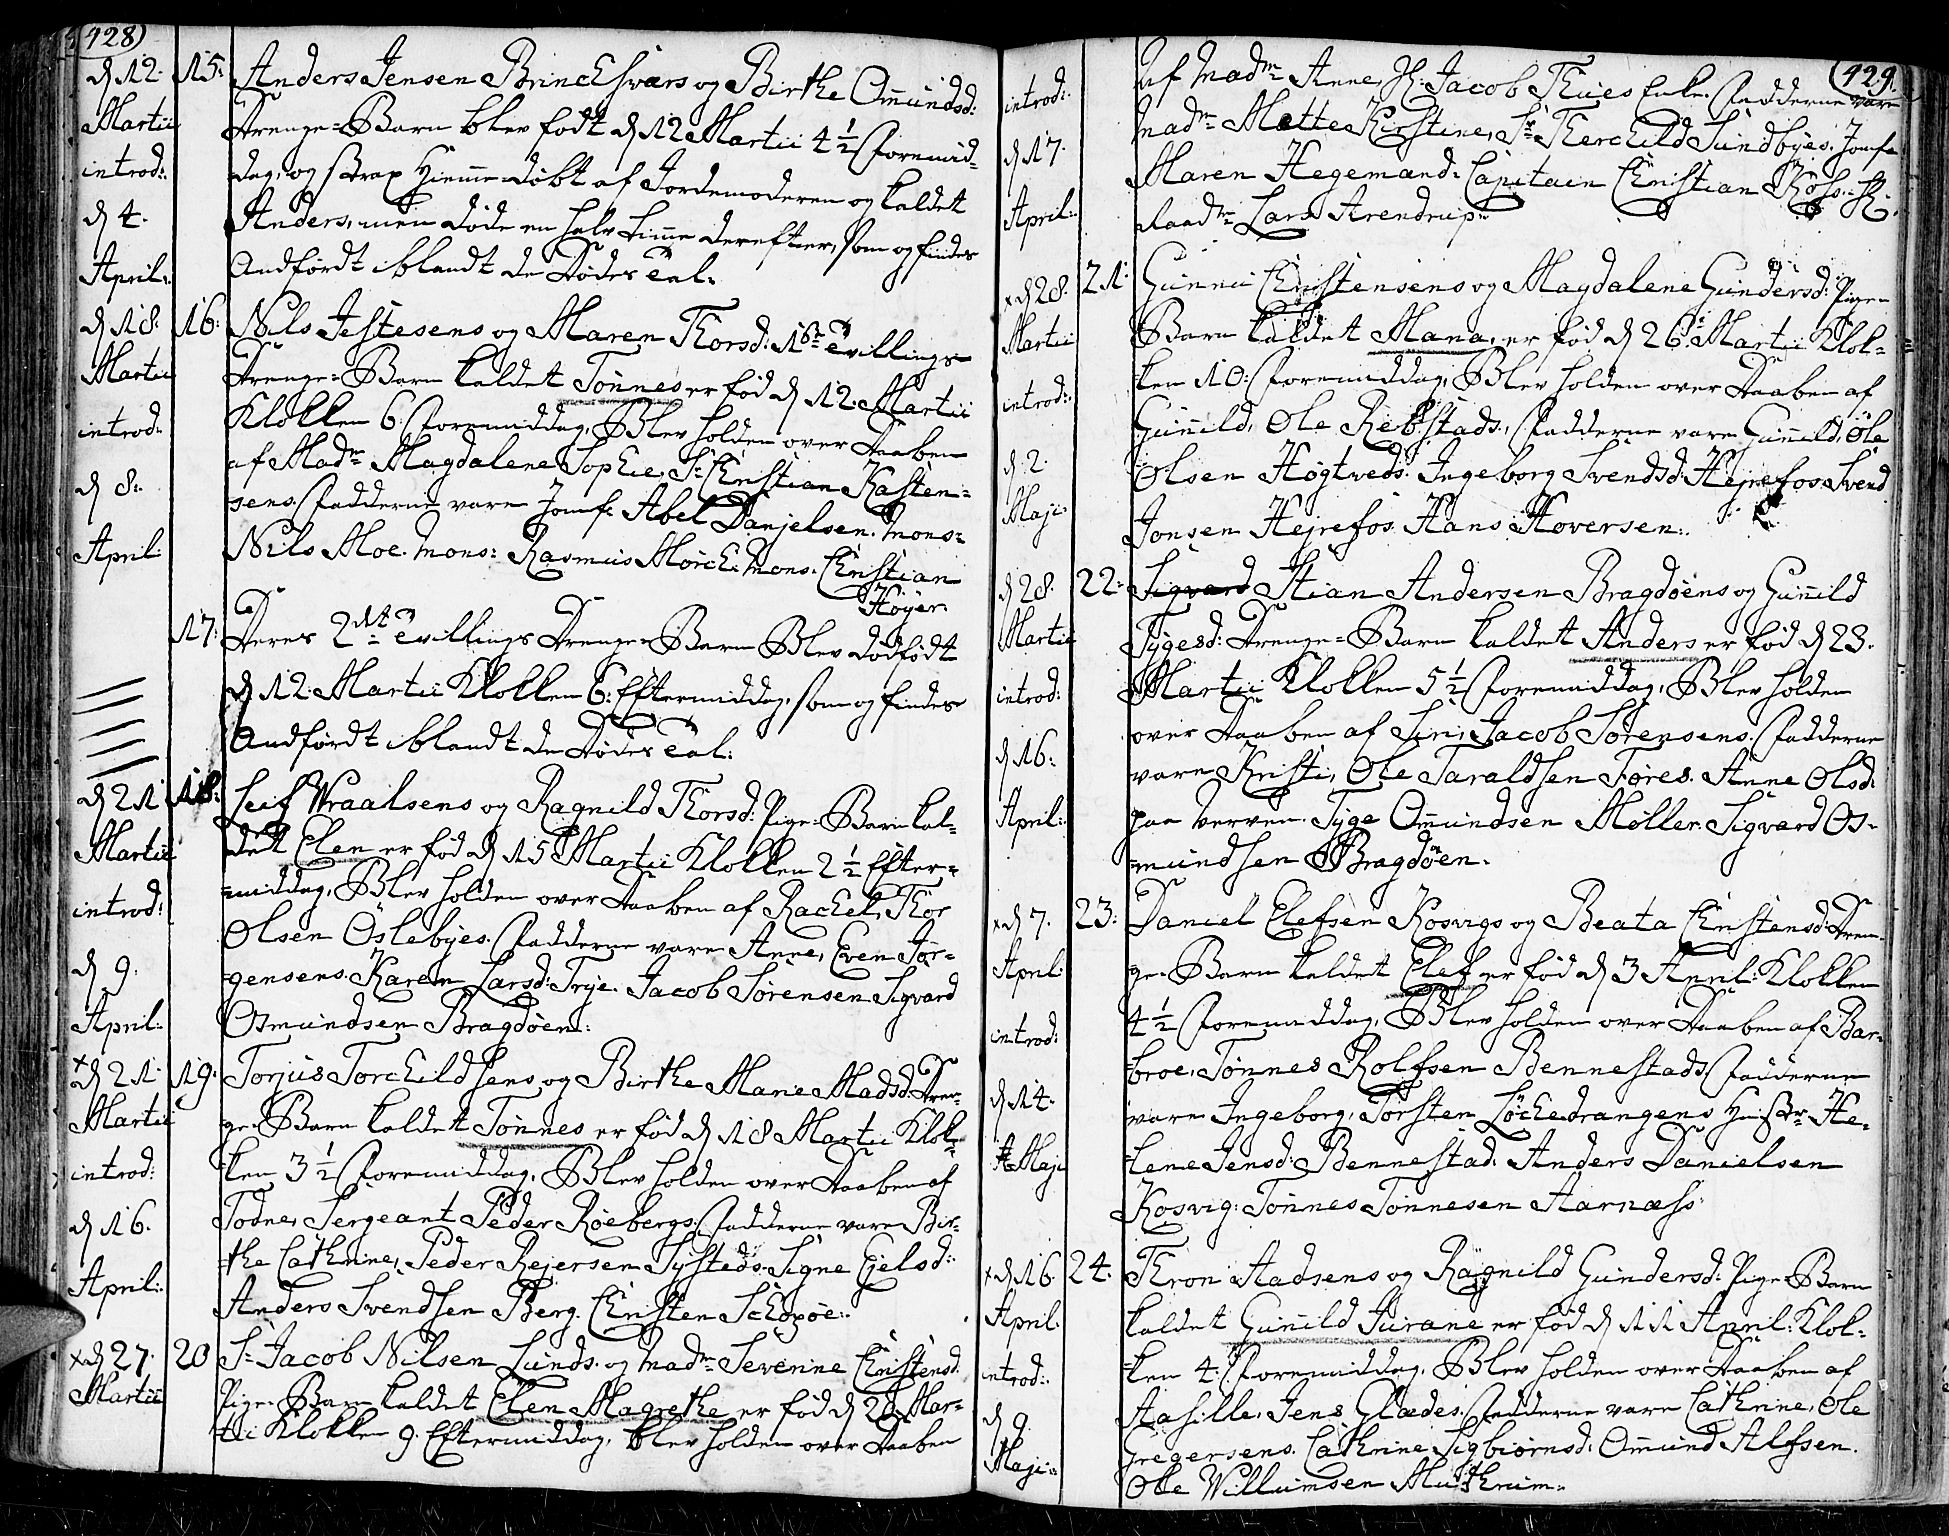 428)
d 12. Martii introd: d 4. April: 15:
Anders Jensen Brinchsværs og Birthe Omundsd:
Drenge-Barn blev født d 12 Martii 4 1/2 Formid-
dag, og strax Hiemme-døbt af Jordemoderen og kaldet
Anders, men døde en halv Time derefter, som og findes
Andført iblandt de Dødes Tal:
d 18. Martii introd: d 8: April 16:
Nils Jestesens og Maren Thorsd: 1ste Tvillings
Drenge-Barn kaldet Tönnes er fød d 12 Martii
Klokken 6 Formiddag, Blev holden over Daaben
af Madm Magdalene Sophie, Sr Christian Kasten-
sens. Fadderne vare Jomf: Abel Danjelsen. Mons:
Nils Moe. Mons: Rasmus Mörch. Mons: Christian
Höyer.
17:
Deres 2det Tvillings Drenge-Barn Blev dödfødt
d 12. Martii Klokken 6: Eftermiddag, som og findes
Andført iblandt de Dødes Tal:
d 21 Martii introd: d 9. April: 18:
Leif Wraalsens og Ragnild Thorsd: Pige-Barn kal-
det Elen er fød d 15 Martii Klokken 2 1/2 Efter-
-middag, Blev holden over Daaben af Rachel, Thor
Olsen Oslebyes. Fadderne vare Anne, Even Jör-
gensens. Karen Larsd: Trye. Jacob Sörensen. Sigvard
Osmundsen Bragdöen:
x d 21. Martii introd: d 16. April: 19:
Torjus Torchildsens og Birthe Marie Madsd: Dren-
ge-Barn kaldet Tönnes er fød d 18 Martii Klok-
-ken 3 1/2 Formiddag, Blev holden over Daaben af
Todne, Sergeant Peder Röebergs. Fadderne vare Bir-
-the Cathrine, Peder Rejersen Systeds. Signe Ejelsd:
Anders Svendsen Berg. Christen Schoxöe:
x d 27. Martii 20
Sr Jacob Nilsen Lunds. og Madm Severine Christensd.
Pige-Barn kaldet Elen Magrethe er fød d 20 Mar-
tii Klokken 9. Eftermiddag, blev holden over Daaben
429.
introd: d 17. April:
af Madm Anne, Sl: Jacob Thues Enke. Fadderne vare
Madm Mette Kirstine, Sr Therchild Sundbyes. Jomf:
Maren Hegemand: Capitain Christian
Raadm Lars Arendrup:
x d 28. Martii introd: d 2 Maji: 21:
Gunni Christensens og Magdalene Gundersd: Pige-
Barn kaldet Mana, er fød d 26 Martii Klok-
-ken 10: Formiddag, Blev holden over Daaben af
Gunild, Ole Rebstads., Fadderne vare Gunild, Ole
Olsen Högtveds. Ingeborg Svendsd: Hejrefos. Svend
Jonsen Hejrefos. Hans Hoversen:
d 28. Martii introd: d 16: April: 22:
Sigvard Stian Andersen Bragdöens og Gunild
Tygesd: Drenge-Barn kaldet Anders er fød d 23.
Martii Klokken 5 1/2 Formiddag, Blev holden
over Daaben af Siri, Jacob Sörensens. Fadderne
vare Kristi, Ole Taraldsen Föres. Anne Olsd:
paa Verven. Tyge Omundsen Möller. Sigvard Os-
-mundsen Bragdöen.
x d 7. April: introd: d 14. Maji 23:
Daniel Elefsen Kosvigs og Beata Christensd: Dren-
ge-Barn kaldet Elef er fød d 3 April: Klokken
4 1/2 Formiddag, Blev holden over Daaben af Bar-
-broe, Tönnes Rolfsen Bennestads. Fadderne
vare Ingeborg, Torsten Löchedrangens Hustr. He-
-lene Jensd: Bennestad. Anders Danielsen
Kosvig: Tönnes Tönnesen Aarnæss:
x d 16. April. introd: d 9. Maji: 24:
Thron Aadsens og Ragnild Gundersd: Pige-Barn
kaldet Gunild Jurane er fød d 11 April: Klok-
-ken 4: Formiddag, Blev holden over Daaben af
Aasille, Jens Glædes. Fadderne vare Cathrine, Ole
Gregersens. Cathrine Sigbiörnsd: Omund Alfsen.
Ole Willumsen